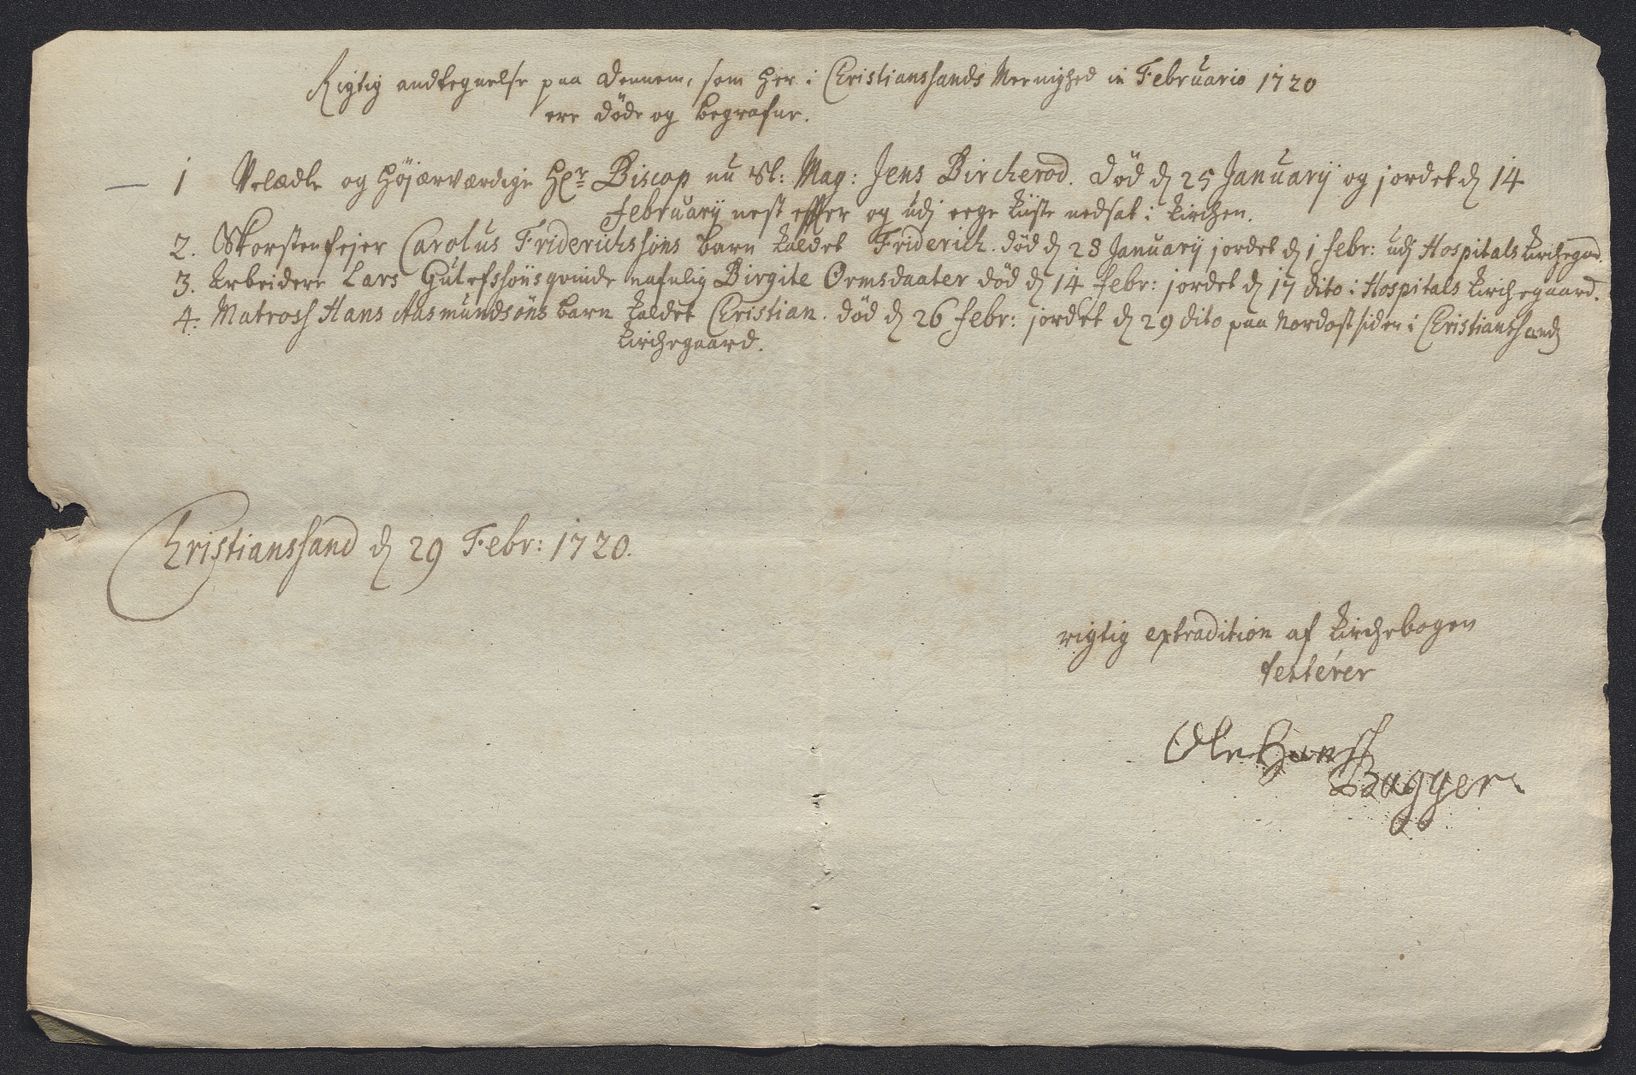 Rigtig andtegnelse paa dennem, som her i Christianssands Meenighed in Februario 1720
ere døde og begrafne.
1 Velædle og Højærværdige Hr Biscop nu Sl: Mag: Jens Bircherod. død d 25 Januarij og jordet d 14
Februarij nest effter og udj eege Kiiste nedsat i Kirchen.
2. Skorstenfejer Carolus Friderichssøns barn kaldet Friderich. død d 28 Januarij jordet d 1 febr: udj Hospitals Kirchegrd.
3. Arbeidere Lars Gutefssøns qvinde nafnlig Birgite Ormsdaater død d 14 febr: jordet d 17 dito i Hospitals Kirchegaard.
4. Matross Hans Aasmundsøns barn kaldet Christian. død d 26 febr: jordet d 29 dito paa Nordost siden i Christianssands
Kirchegaard.
Christianssand d 29 Febr: 1720.
rigtig extradition af Kirchebogen
testerer
Ole Hanss
Bagger